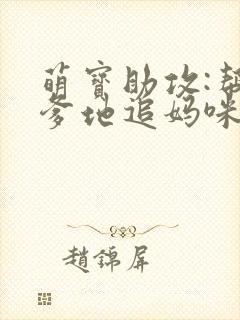 萌寶助攻:幫
爹地追媽咪
趙錦屏